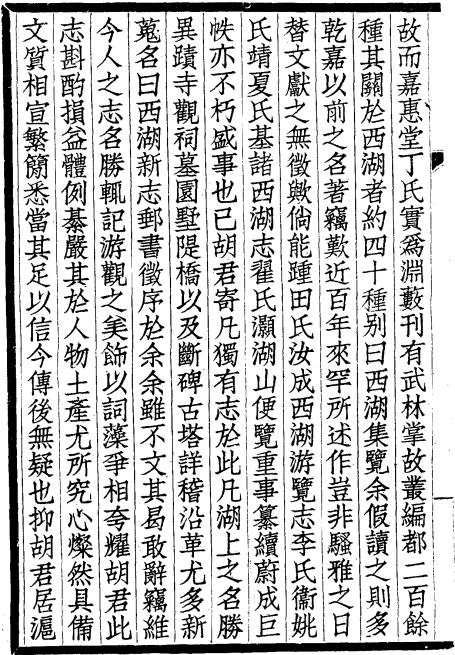 故而嘉惠堂丁氏實爲淵藪刊有武林掌故叢編都二百餘
種其關於西湖者約四十種别曰西湖集覽余假讀之則多
乾嘉以前之名著竊歎近百年來罕所述作豈非騷雅之日
替文獻之無徵歟倘能踵田氏汝成西湖游覽志李氏衞姚
氏靖夏氏基諸西湖志翟氏灝湖山便覽重事纂續蔚成巨
帙亦不朽盛事也已胡君寄凡獨有志於此凡湖上之名勝
異蹟寺觀祠墓園墅隄橋以及斷碑古塔詳稽沿革尤多新
蒐名曰西湖新志郵書徵序於余余雖不文其曷敢辭竊維
今人之志名勝輒記游觀之美飾以詞藻爭相夸耀胡君此
志斟酌損益體例綦嚴其於人物土產尤所究心燦然具備
文質相宣繁簡悉當其足以信今傳後無疑也抑胡君居滬